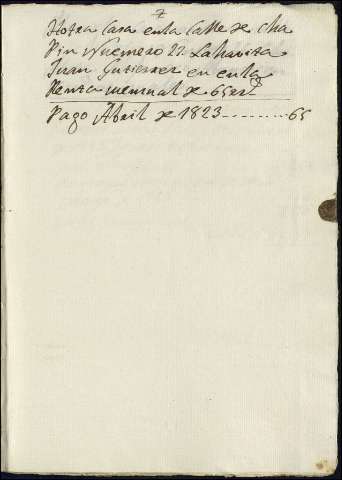 7
Hotra Casa enla Calle de cha
Pin Nuemero 22. Lahavita
Juan Gutierrez en enla
Renta mensual de 65 rs
Pago Abril de 1823 ......... 65